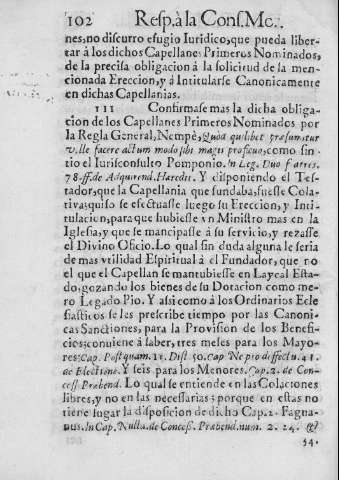 102 Resp. à la Cons. Me..
nes; no discurro efugio Iuridico, que pueda liber-
tar à los dichos Capellanes Primeros Nominados,
de la precisa obligacion à la solicitud de la men-
cionada Ereccion, y à Intitularse Canonicamente
en dichas Capellanias.
111 Confirmase mas la dicha obliga-
cion de los Capellanes Primeros Nominados por
la Regla General, Nempè, Quòd quilibet præsumatur
velle facere actum modo sibi magis proficuo; como sin-
tio el Iurisconsulto Pomponio. In Leg. Duo fratres.
78. ff. de Adquirend. Hæredit. Y disponiendo el Tes-
tador, que la Capellania que fundaba, fuesse Cola-
tiva; quiso se efectuasse luego su Ereccion, y Inti-
tulacion, para que hubiesse vn Ministro mas en la
Iglesia, y que se mancipasse à su servicio, y rezasse
el Divino Oficio. Lo qual sin duda alguna le seria
de mas vtilidad Espiritual à el Fundador, que no
el que el Capellan se mantubiesse en Laycal Esta-
do, gozando los bienes de su Dotacion como me-
ro Legado Pio. Y assi como à los Ordinarios Ecle
siasticos se les prescribe tiempo por las Canoni-
cas Sanctiones, para la Provision de los Benefi-
cios; conviene à saber, tres meses para los Mayo-
res: Cap. Postquam. 11. Dist. 50. cap Ne pro deffectu. 41.
de Elections. Y seis para los Menores. Cap. 2. de Con-
cess. Præbend. Lo qual se entiende en las Colaciones
libres, y no en las necessarias; porque en estas no
tiene lugar la disposicion de dicho Cap. 2. Fagna-
nus. In Cap. Nulla. de Concess. Præbend. num. 2. 24. &
54.